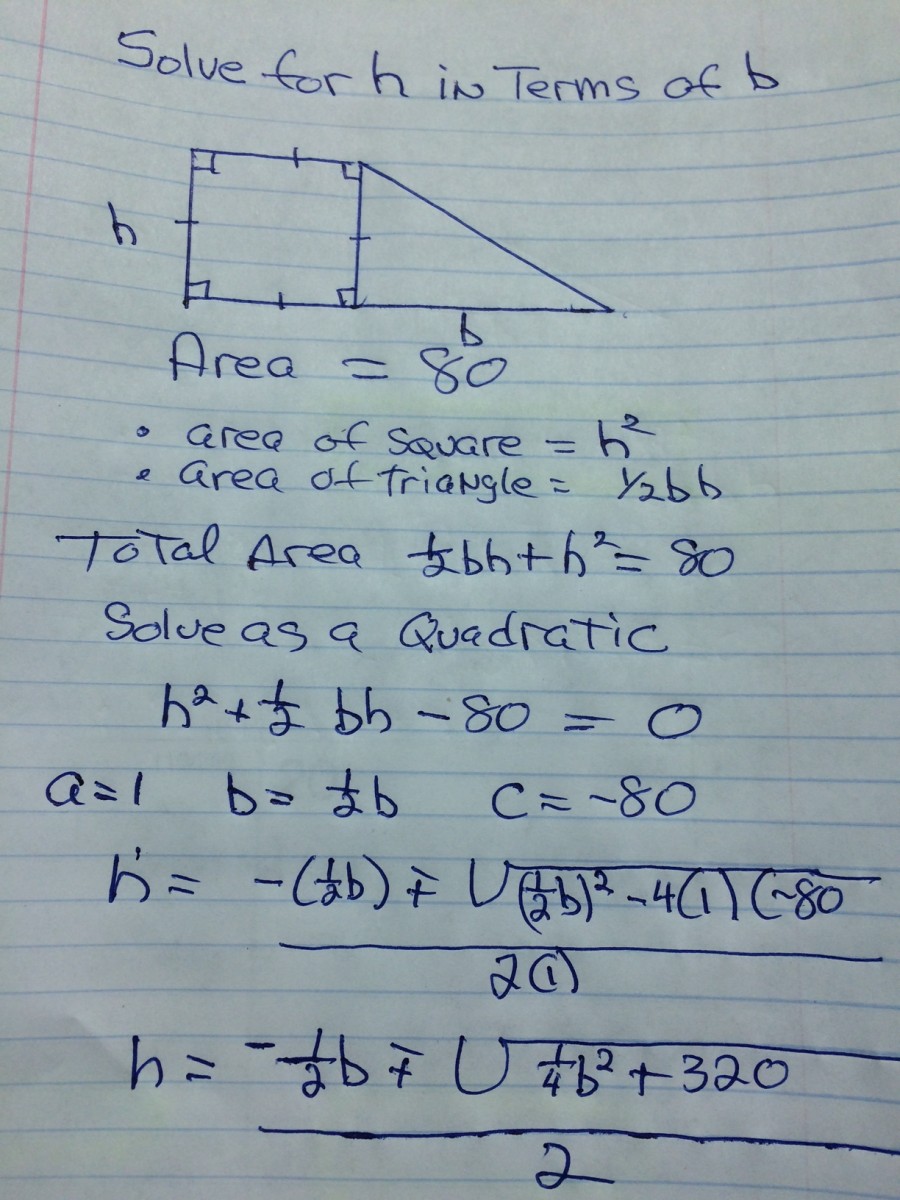 Solve for h in Terms of b
h
b
Area = 80
• area of square = h²
• area of triangle = 1/2bh
Total Area ½bh + h² = 80
Solve as a Quadratic
h² + ½ bh - 80 = 0
a = 1 b = ½b c = -80
h = -(½b) ∓ √(½b)² - 4(1)(-80
2(1)
h = -½b ∓ √¼b² + 320
2